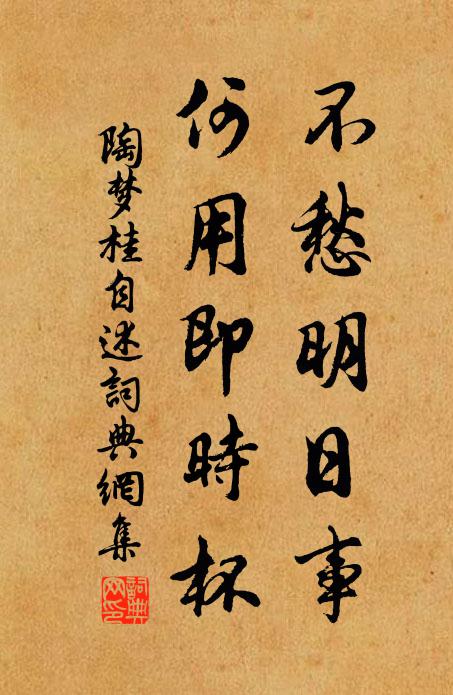 不愁明日事
何用即時杯
陶梦桂自述詞典網集
詞典網印